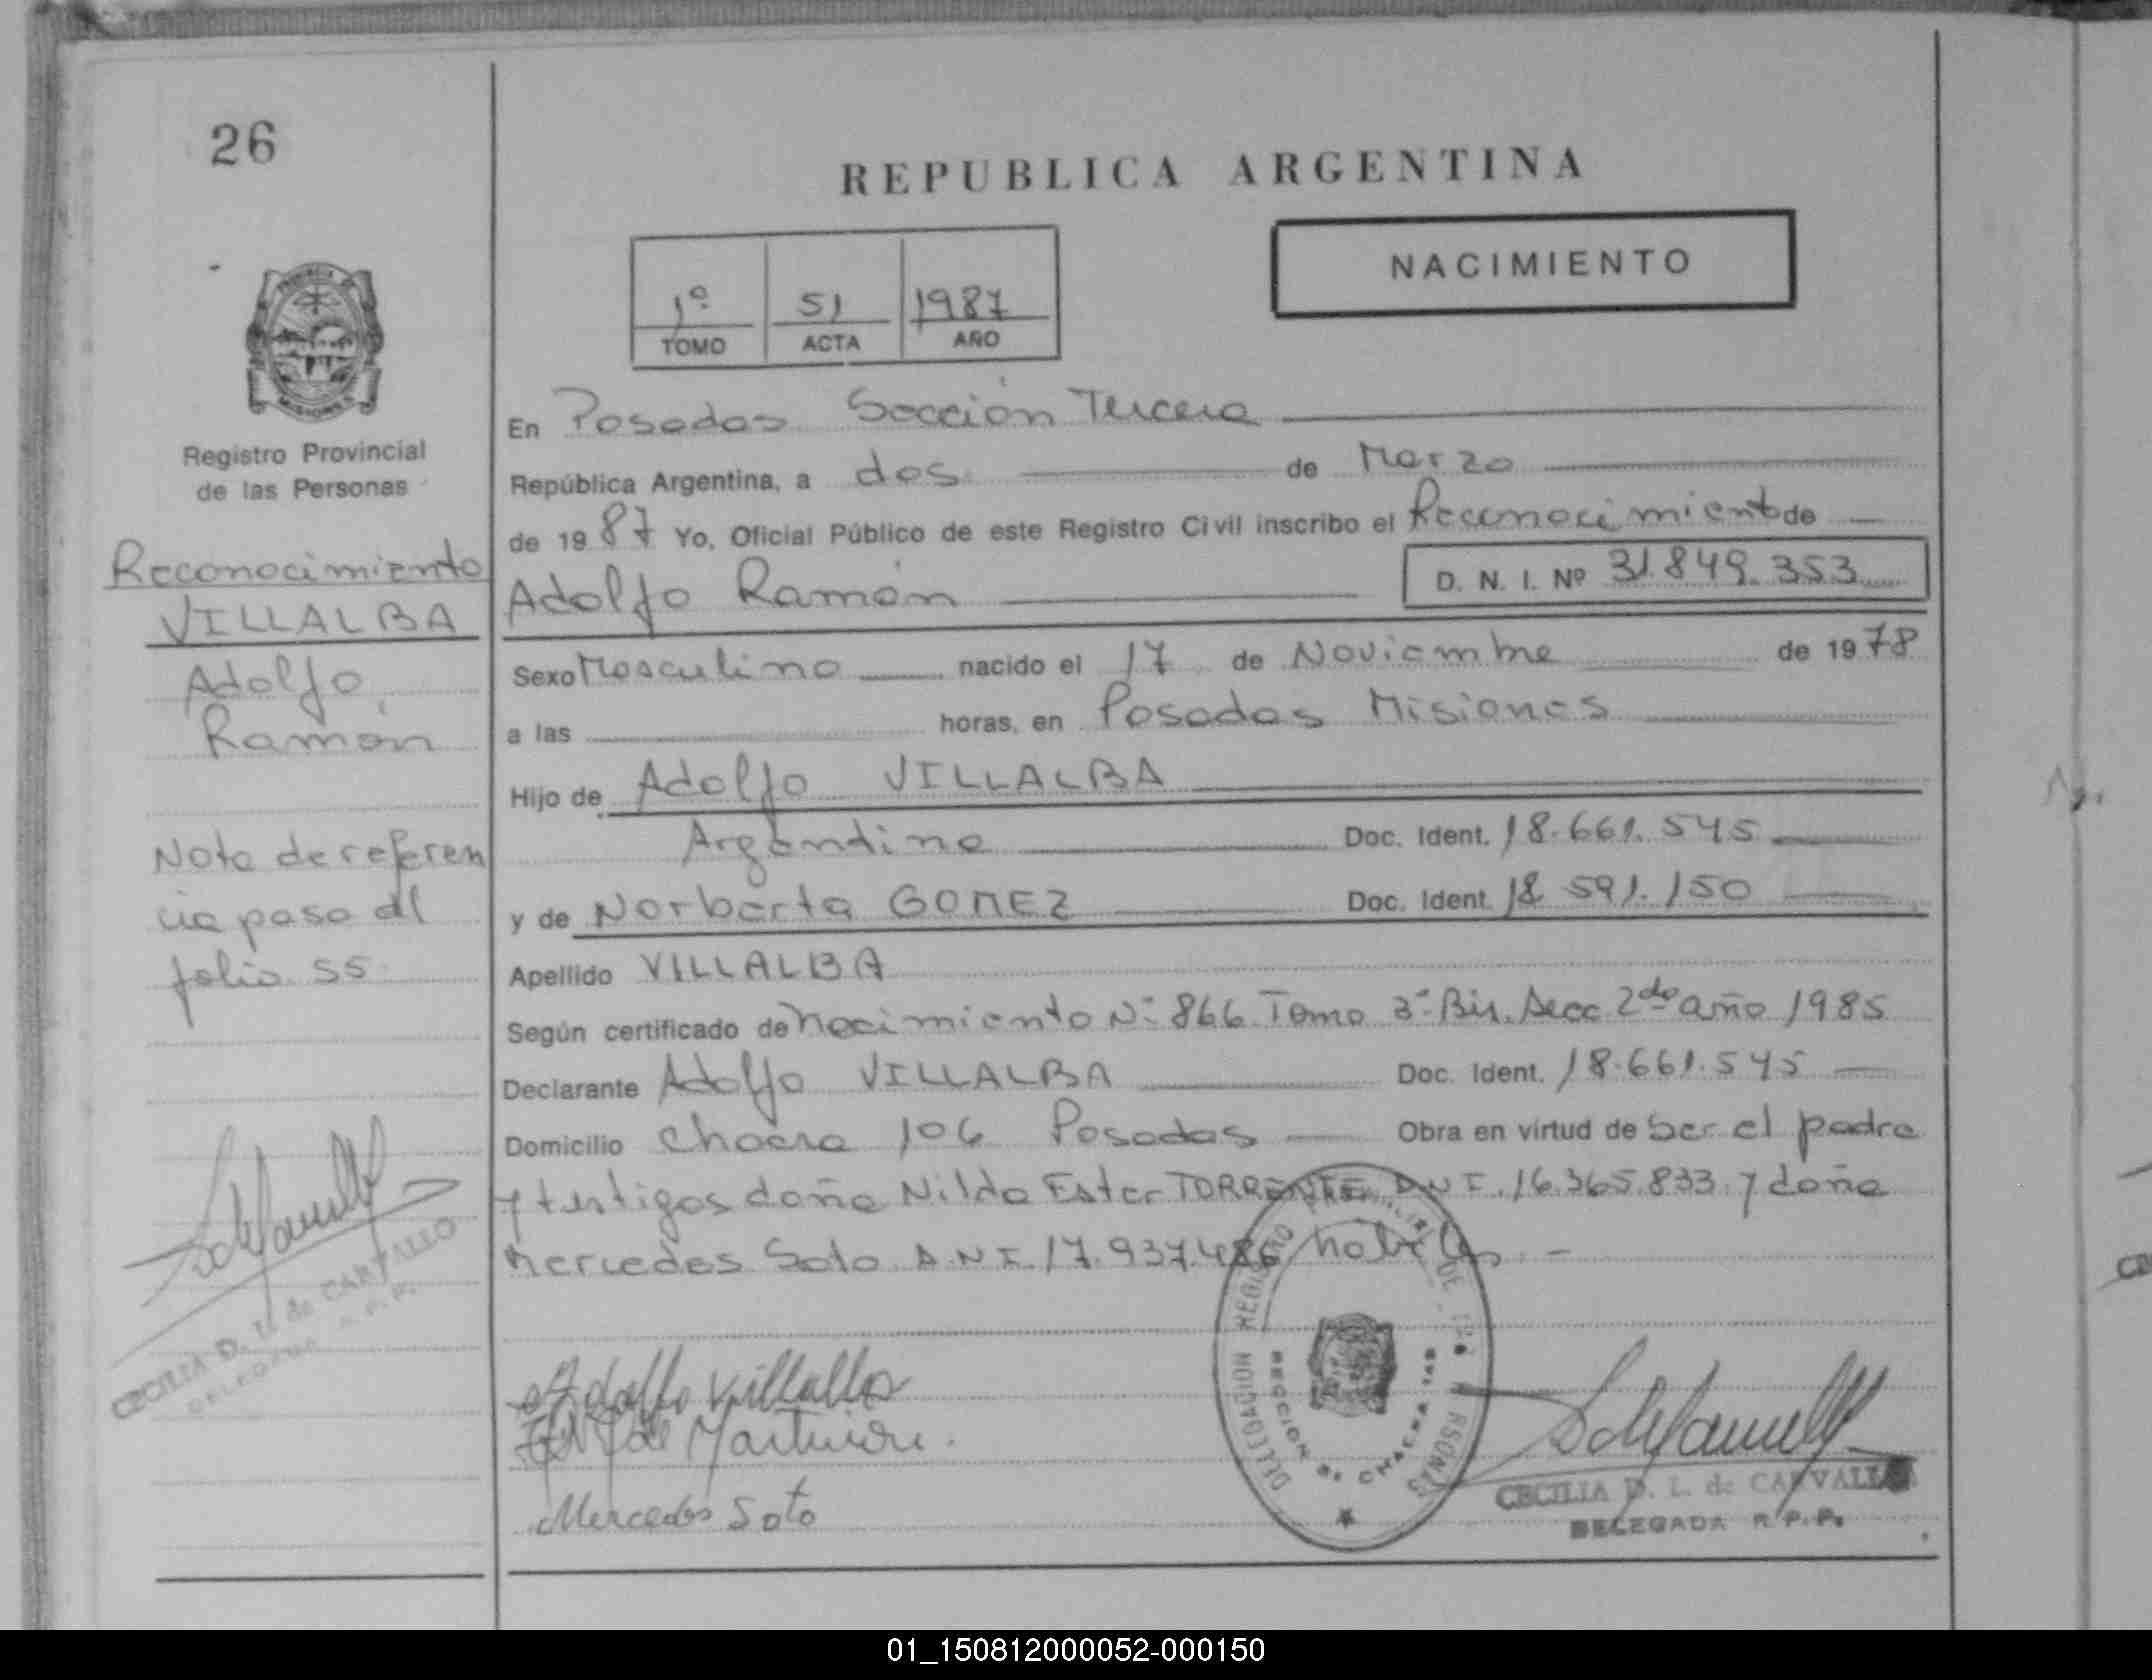 26
REPUBLICA ARGENTINA
NACIMIENTO
1º 51 1987
TOMO ACTA AÑO
PROVINCIA
MISIONES
Registro Provincial
de las Personas
Reconocimiento
VILLALBA
Adolfo
Ramón
Nota de referen
cia paso al
folio 55
CECILIA D. L. de CARVALLO
DELEGADA R. P. P.
En Posadas Sección Tercera
República Argentina, a dos de Marzo
de 1987 Yo, Oficial Público de este Registro Civil inscribo el Reconocimiento de
Adolfo Ramón D. N. I. Nº 31.849.353
Sexo Masculino nacido el 17 de Noviembre de 1978
a las horas, en Posadas Misiones
Hijo de Adolfo VILLALBA
Argentino Doc. Ident. 18.661.545
y de Norberta GOMEZ Doc. Ident. 18 591.150
Apellido VILLALBA
Según certificado de Nacimiento Nº 866 Tomo 3º Bis. Secc 2do año 1985
Declarante Adolfo VILLALBA Doc. Ident. 18.661.545
Domicilio Chacra 106 Posadas Obra en virtud de ser el padre
y testigos doña Nilda Ester TORRENTE D.N.I. 16.365.833 y doña
Mercedes Soto D.N.I. 17.937.486 habiles
DELEGACION REGISTRO PROVINCIAL DE LAS PERSONAS
SECCION 3a CHACRA
Adolfo Villalba
Mercedes Soto
CECILIA D. L. de CARVALLO
DELEGADA R. P. P.
01_150812000052-000150